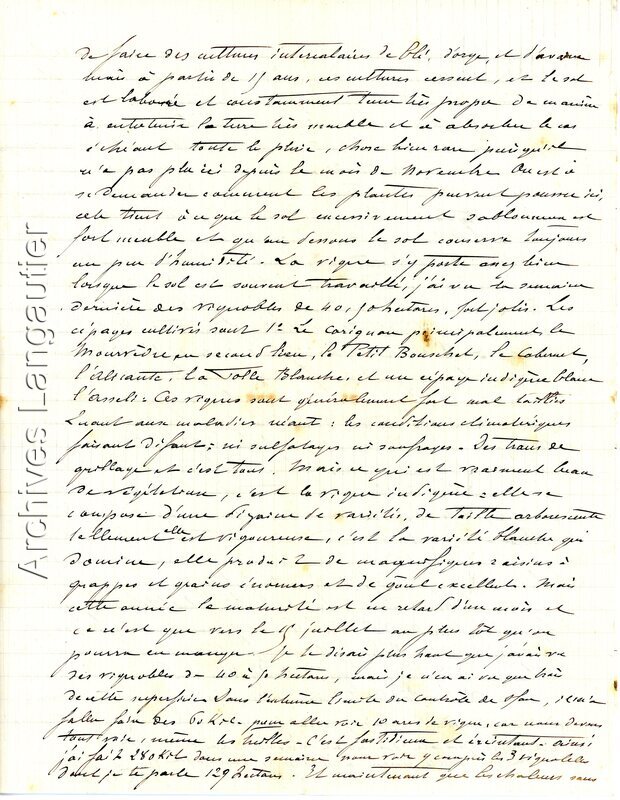 de faire des cultures intercalaires de blé, d'orge, et d'avoine
mais à partir de 15 ans, ces cultures cessent, et le sol
est labouré et constamment tenu très propre de manière
à entretenir la terre très meuble et à absorber le cas
échéant toute la pluie, chose bien rare puisqu'il
n'a pas plu ici depuis le mois de Novembre On est à
se demander comment les plantes peuvent pousser ici,
cela tient à ce que le sol excessivement sablonneux est
fort meuble et qu'au dessous le sol conserve toujours
un peu d'humidité. La vigne s'y porte assez bien
lorsque le sol est souvent travaillé, j'ai vu la semaine
dernière des vignobles de 40, 50 hectares, fort jolis. Les
cépages cultivés sont 1° Le Carignan principalement, le
Mourvèdre en second lieu, le Petit Bouschet, le Cabernet,
l'Alicante, la Folle Blanche, et un cépage indigène blanc
l'Asseli = Ces vignes sont généralement fort mal taillées
Quant aux maladies néant : les conditions climatériques
faisant défaut ; ni sulfatages ni soufrages - Des traces de
grillage et c'est tout. Mais ce qui est vraiment beau
de végétation, c'est la vigne indigène : elle se
compose d'une dizaine de variétés, de taille arborescente
tellement elle est vigoureuse, c'est la variété blanche qui
domine, elle produit de magnifiques raisins à
grappes et grains énormes et de goût excellent. Mais
cette année la maturité est en retard d'un mois et
ce n'est que vers le 15 juillet au plus tôt qu'on
pourra en manger. Je te disais plus haut que j'avais vu
des vignobles de 40 à 50 hectares, mais je n'en ai vu que trois
de cette superficie dans l'extrême limite du contrôle de Sfax, il m'a
fallu faire des 60 Kil. pour aller voir 10 ares de vigne, car nous devons
tout voir, même les treilles - C'est fastidieux et éreintant - ainsi
j'ai fait 280 Kil dans une semaine pour voir y compris les 3 vignobles
dont je te parle 129 hectares. Et maintenant que les chaleurs sont
Archives Langautier